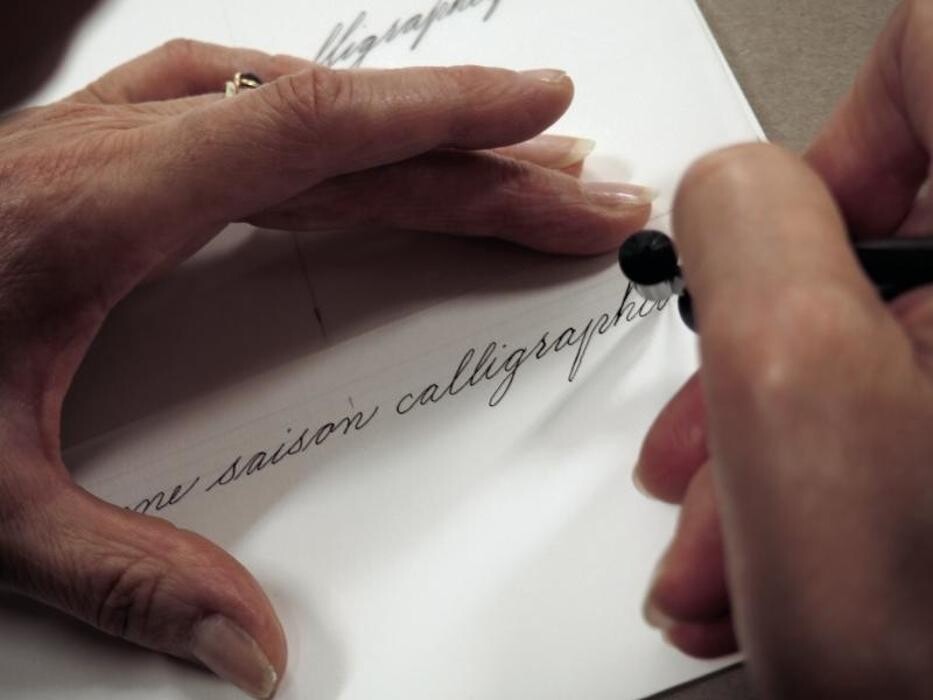 lligraphi
saison calligraphi